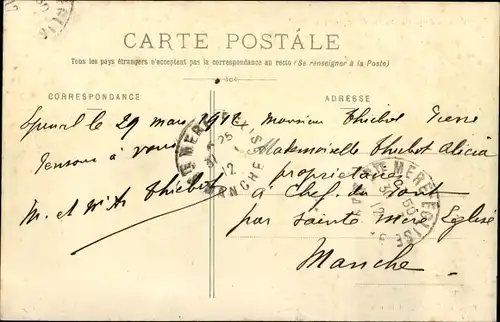 CARTE POSTALE
Tous les pays étrangers n'acceptent pas la correspondance au recto (Se renseigner à la Poste)
CORRESPONDANCE
ADRESSE
le 29 mars 1912
Pensons à vous
M. et Me Thiebot
Monsieur Thiebot Pierre
Mademoiselle Thiebot Alicia
propriétaires
à Chef du Pont
par Sainte Mère Eglise
Manche
STE MERE EGLISE
12
MANCHE
STE MERE EGLISE